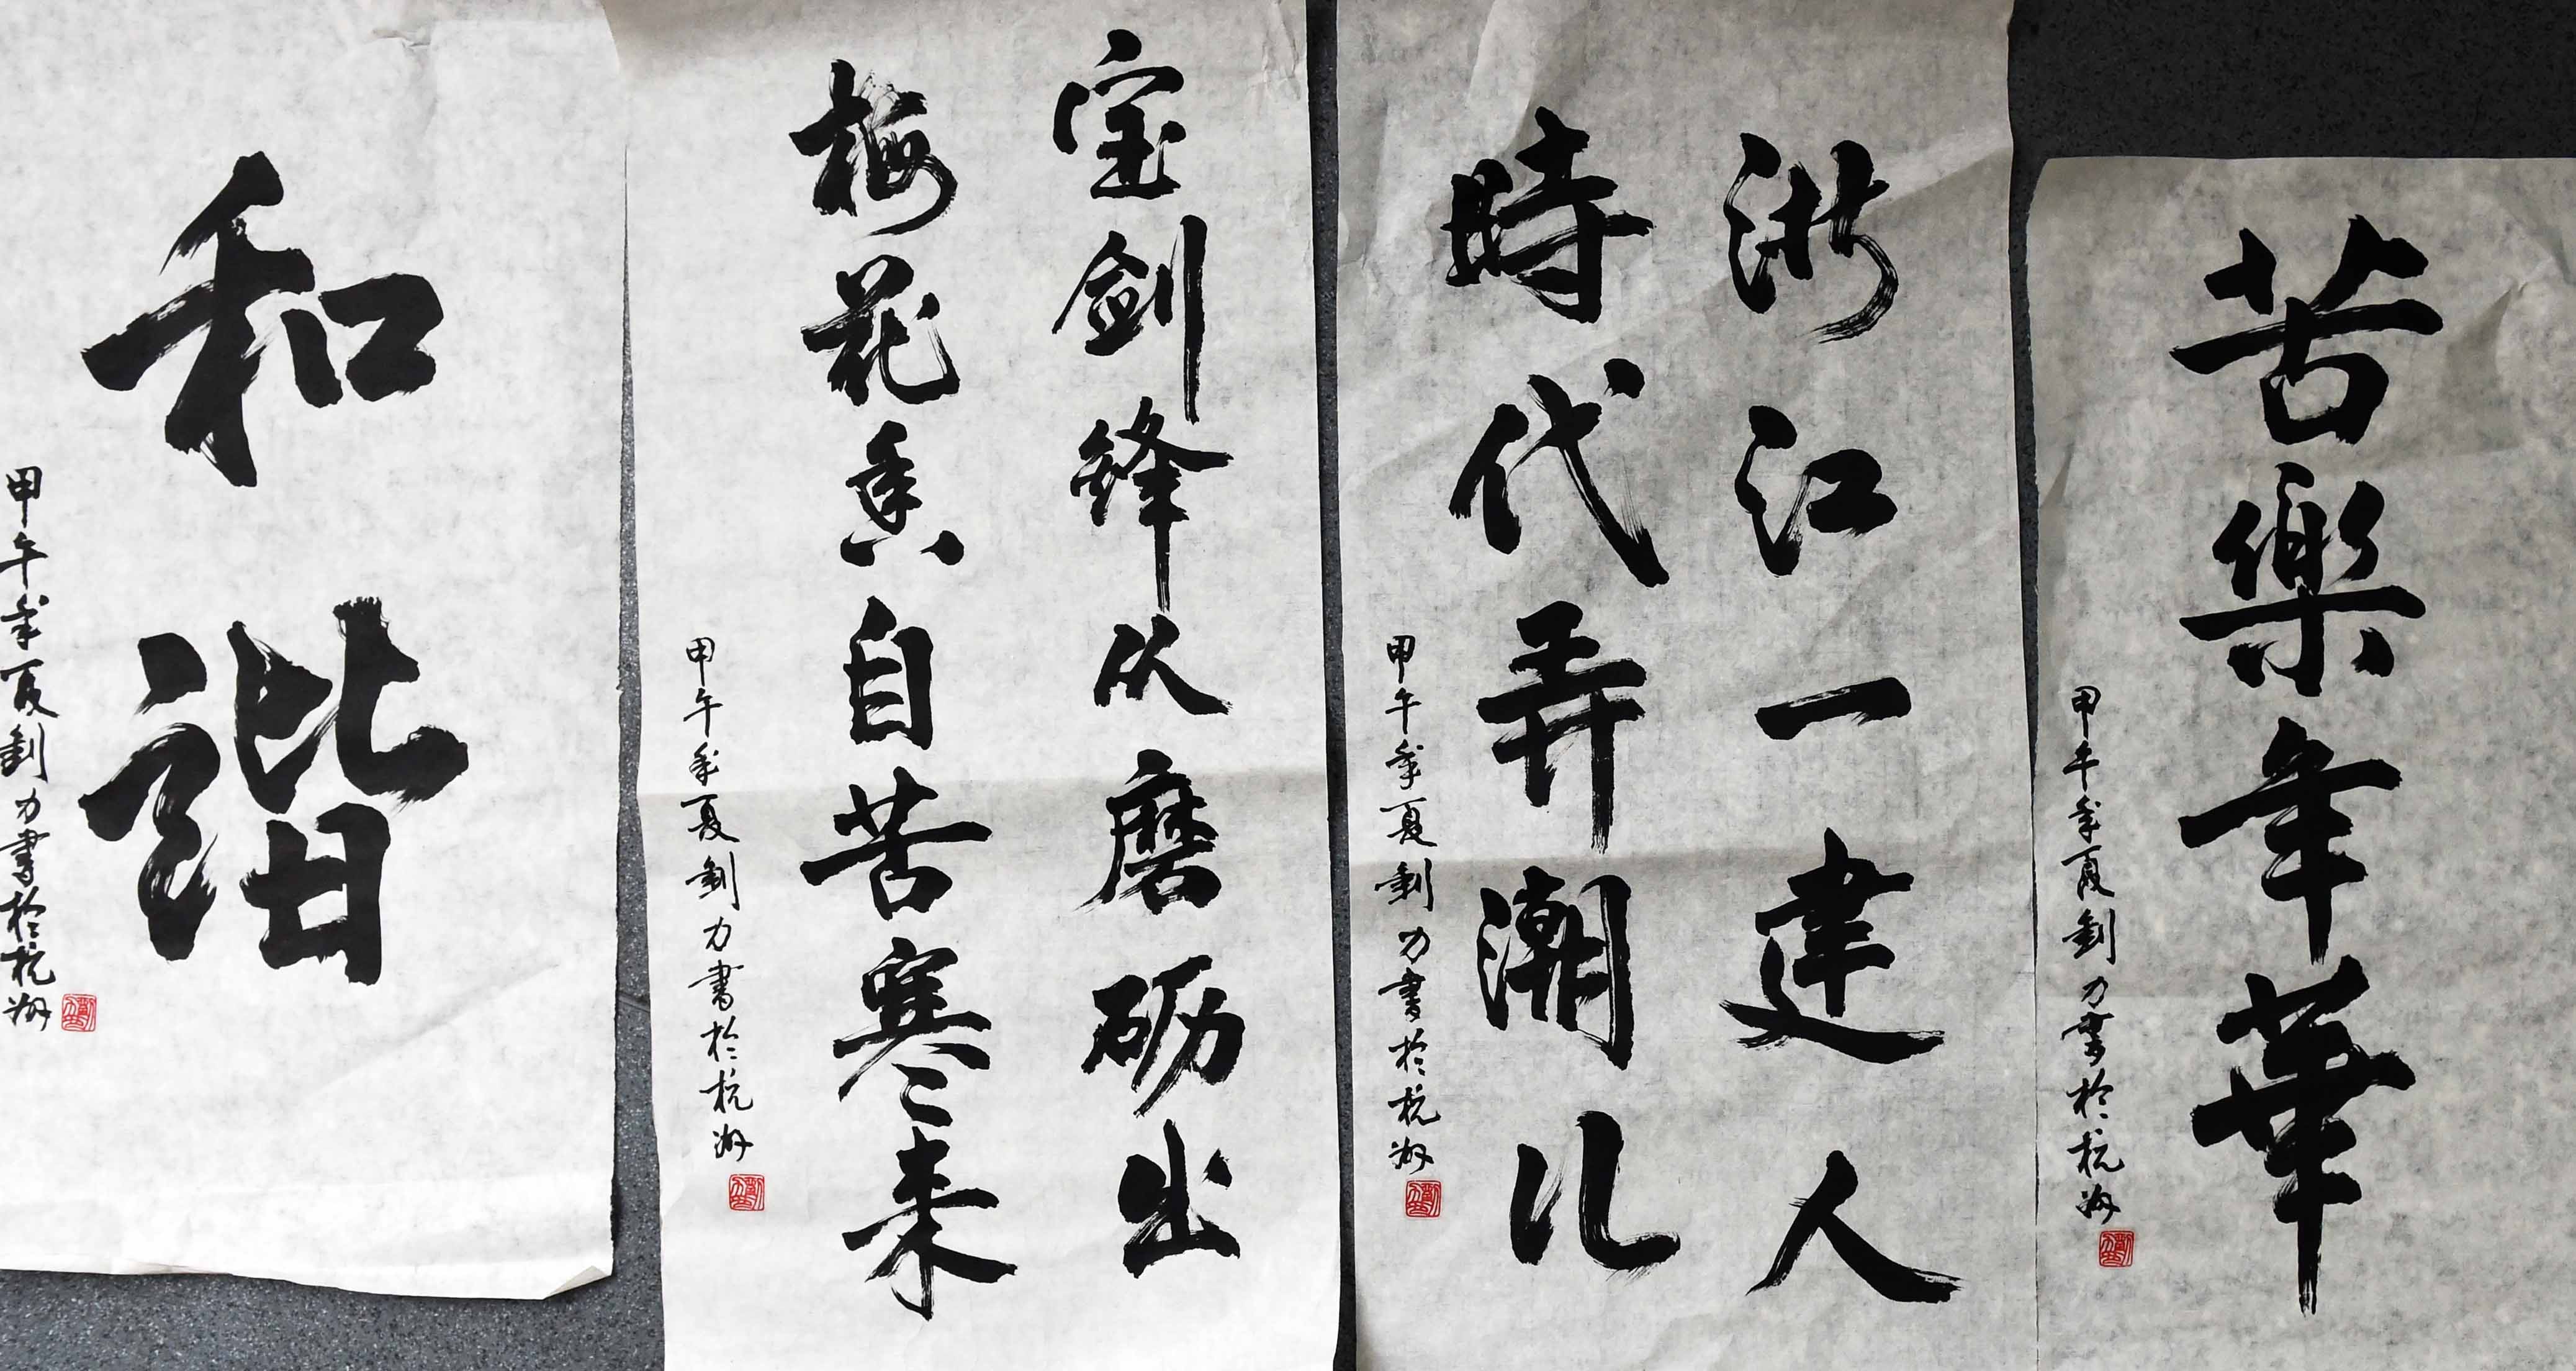 苦樂年華
甲午年夏釗力書於杭州
浙江一建人
時代弄潮儿
甲午年夏釗力書於杭州
宝剑鋒从磨砺出
梅花香自苦寒来
甲午年夏釗力書於杭州
和谐
甲午年夏釗力書於杭州